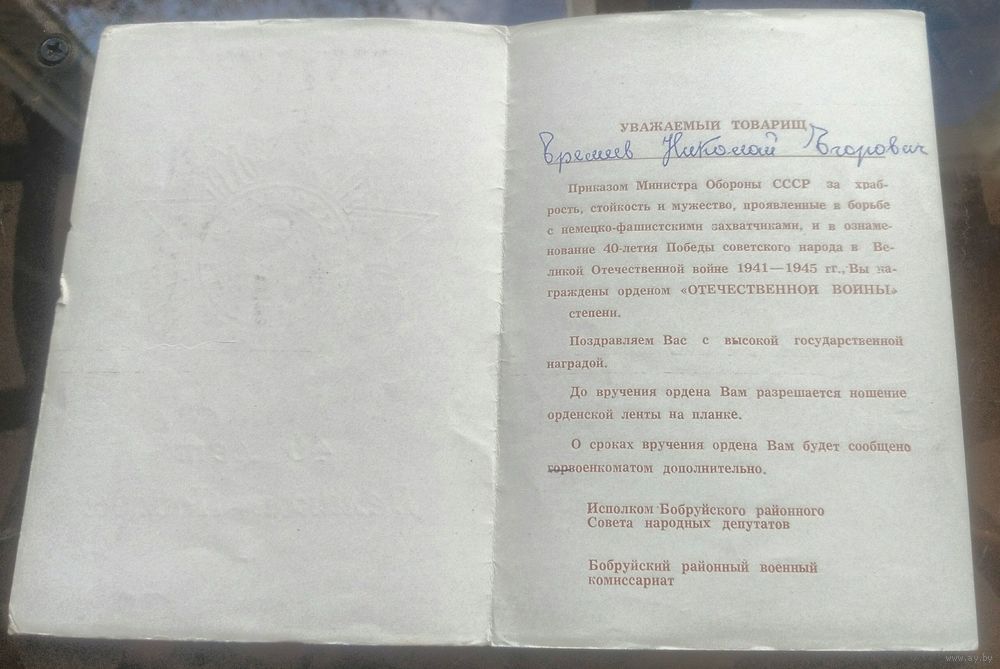 УВАЖАЕМЫЙ ТОВАРИЩ
Еремеев Николай Егорович
Приказом Министра Обороны СССР за храб-
рость, стойкость и мужество, проявленные в борьбе
с немецко-фашистскими захватчиками, и в ознаме-
нование 40-летия Победы советского народа в Ве-
ликой Отечественной войне 1941—1945 гг., Вы на-
граждены орденом «ОТЕЧЕСТВЕННОЙ ВОЙНЫ»
степени.
Поздравляем Вас с высокой государственной
наградой.
До вручения ордена Вам разрешается ношение
орденской ленты на планке.
О сроках вручения ордена Вам будет сообщено
горвоенкоматом дополнительно.
Исполком Бобруйского районного
Совета народных депутатов
Бобруйский районный военный
комиссариат
www.ay.by